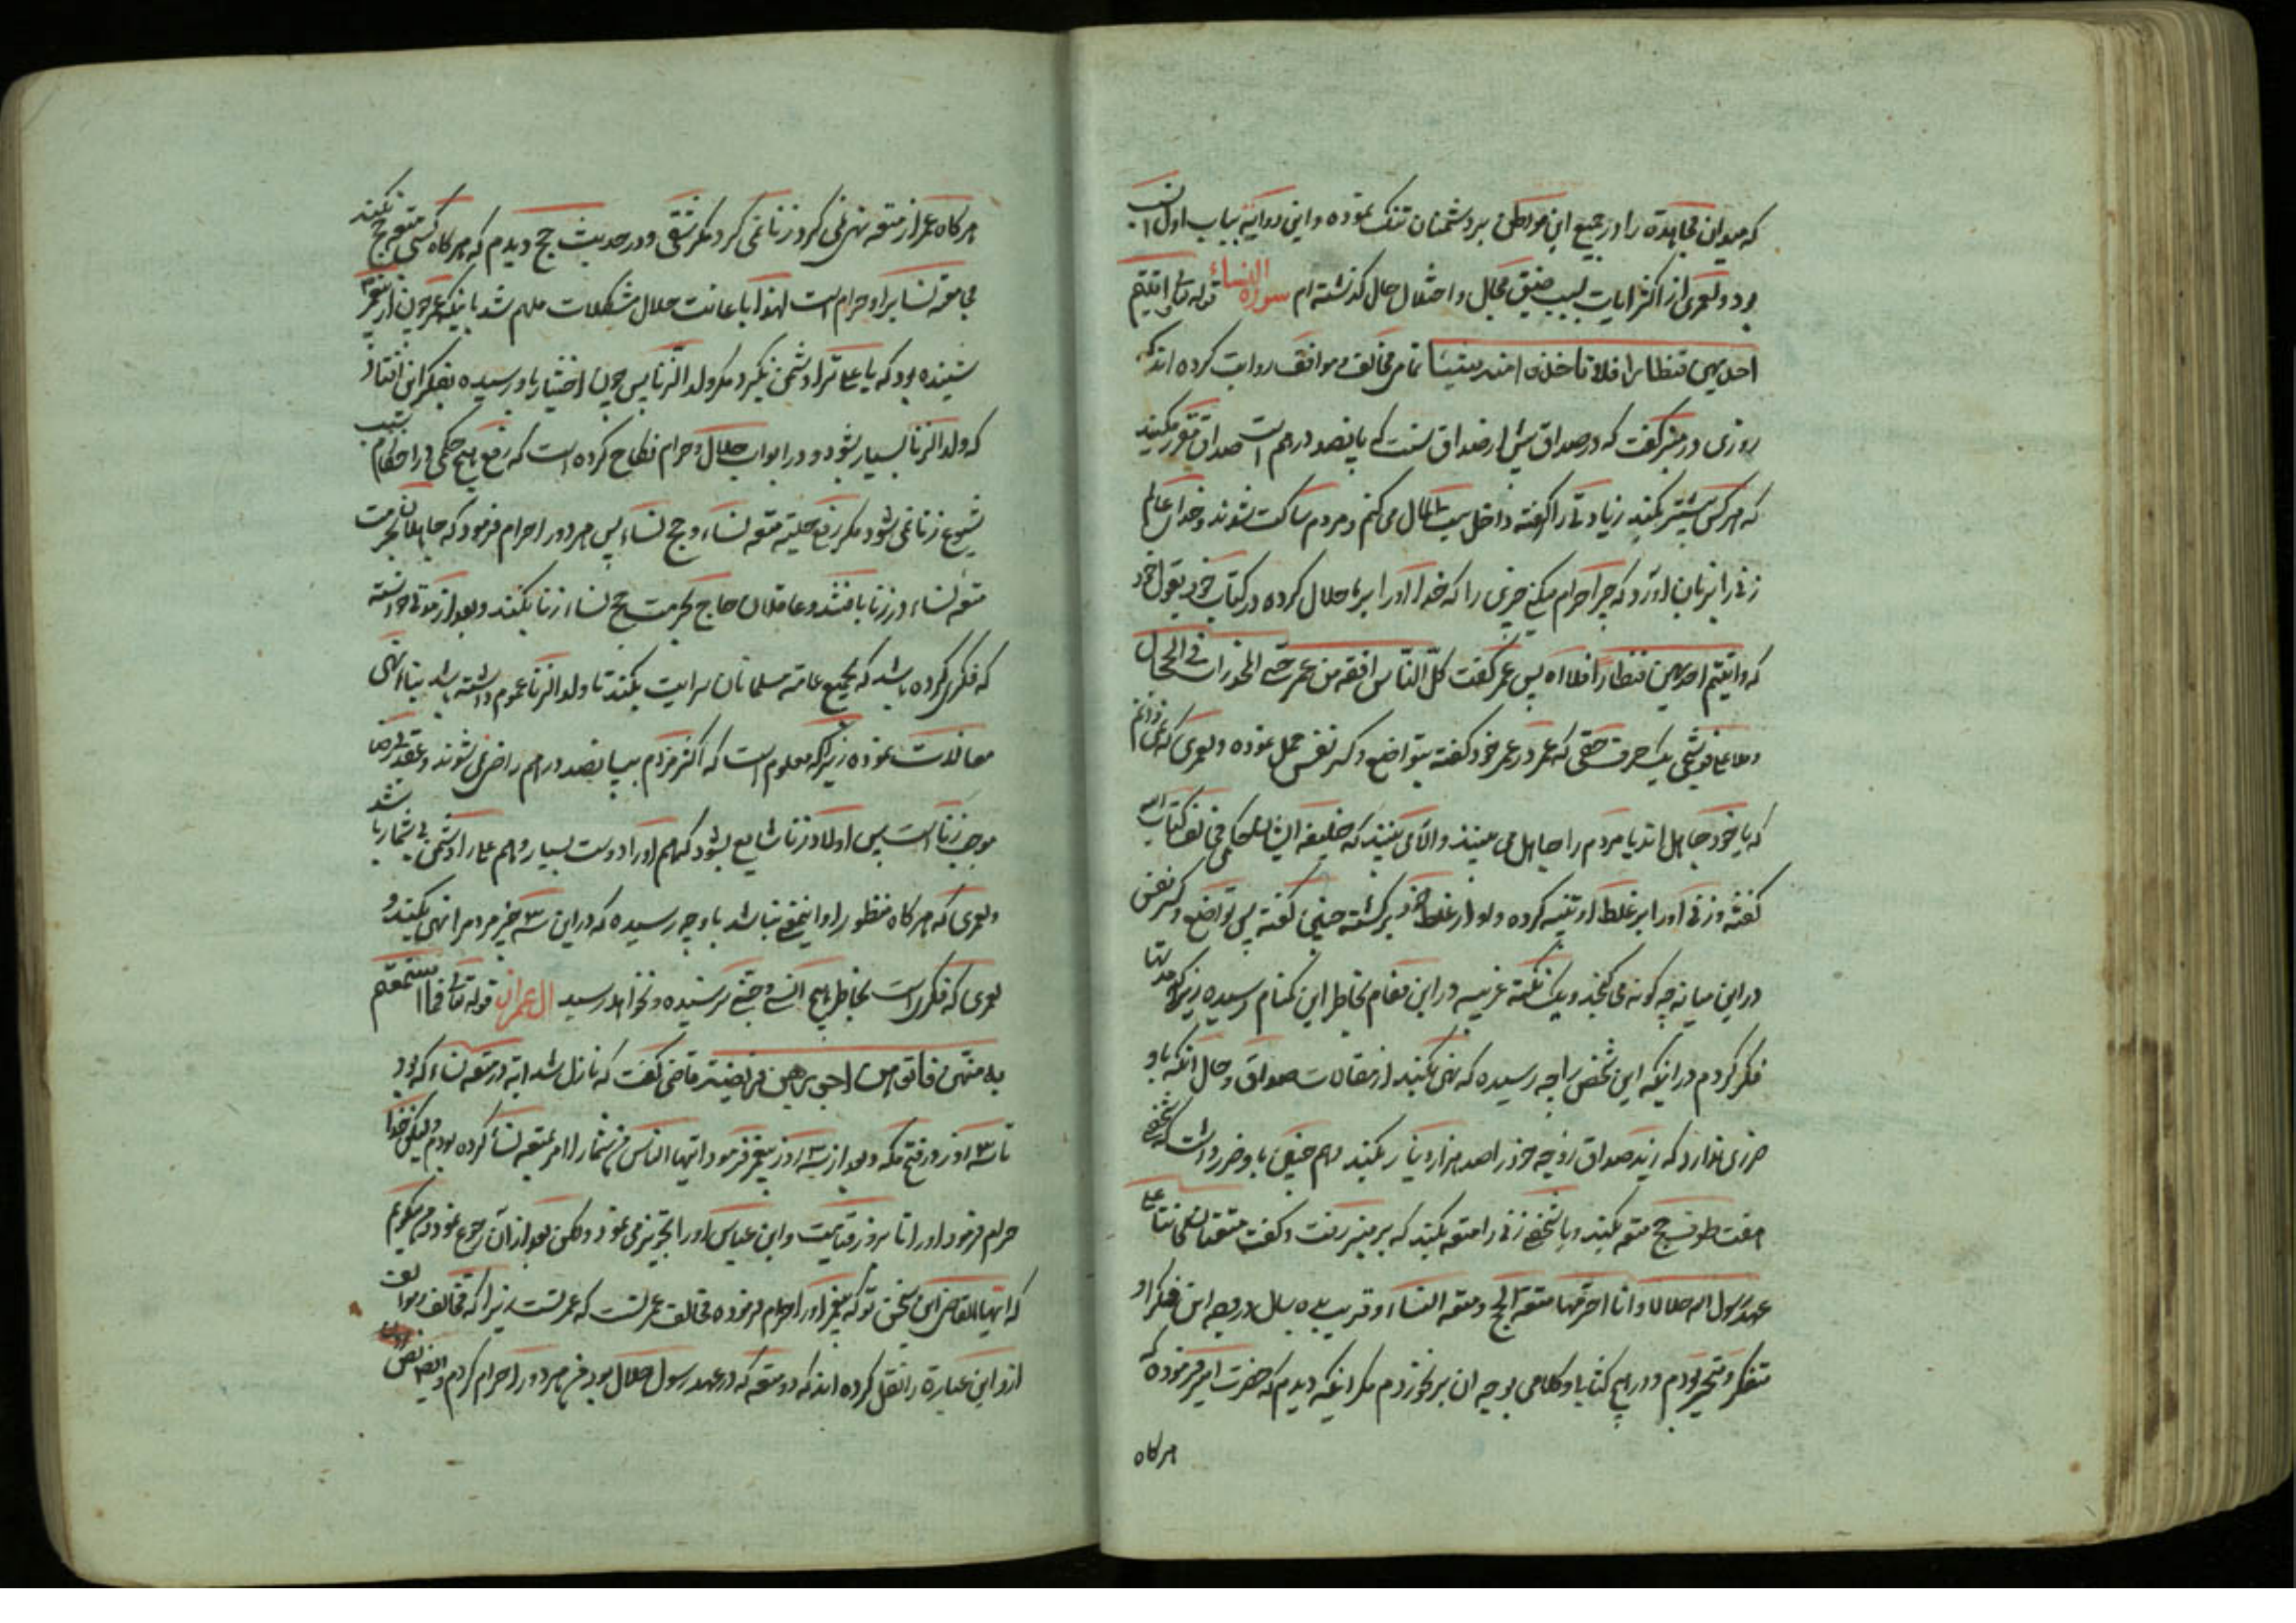 که میدان مجاهده را در جمیع این مواطن بر دشمنان تنک نموده و این روایه بباب اول انسب
بود و لعمری از اکثر ایات بسبب ضیق مجال و اختلال حال کذشته ام سورة النساء قوله تعالی و اتیتم
احدیهن قنطارا فلا تاخذوا منه شیئا تمام مخالف و موافق روایت کرده اند که
روزی در منبر کفت که در صداق بیش از صداق سنت که پانصد درهم است صداق مقرر مکنید
که هر کس بیشتر بکند زیادتی را کرفته داخل بیت المال می کنم و مردم ساکت شوند و خدای عالم
زنی را بزبان اورد که چرا حرام میکنی چیزی را که خدا او را بر ما حلال کرده در کتاب خود بقول خود
که و اتیتم احدیهن قنطارا فلا اه پس عمر کفت کل الناس افقه من عمر حتی المخدرات فی الحجال
و ملا علی قوشچی یک حرف حقی که عمر در عمر خود کفته بتواضع و کسر نفس حمل نموده و لعمری که نمی دانم
که یا خود جاهل اند یا مردم را جاهل می بینند و الا می بینند که خلیفه ایشان حکمی مخالف کتاب الله
کفته و زنی او را بر غلط او تنبیه کرده و او از غلط خود برکشته چنین کفته پس تواضع و کسر نفس
در این میانه چه کونه می کنجد و یک نکته غریبه در این مقام بخاطر این کمنام رسیده زیرا که مدتها
فکر کردم در اینکه این شخص را چه رسیده که نهی بکند از مقالات صداق و حال انکه باو
ضرری ندارد که زید صداق زوجه خود را صد هزار دینار بکند و هم چنین باو ضرر داشت که شخصی
هفت طوف حج متعه بکند و یا شخصی زنی را متعه بکند که بر منبر رفت و کفت متعتان کانتا علی
عهد رسول الله حلالا و انا احرمهما متعة الحج و متعة النساء و قریب ده سال در وجه این فکر او
متفکر و متحیر بودم و در هیچ کتاب و کلامی بوجه ان بر نخوردم مکر انکه دیدم که حضرت امیر فرموده که
هر کاه
هر کاه عمر از متعه نهی نمی کرد زنا نمی کرد مکر شقی و در حدیث حج دیدم که هر کاه کسی متعه حج نکند
مجامعة نسا بر او حرام است لهذا باعانت حلال مشکلات ملهم شد باینکه عمر چون از پیغمبر
شنیده بود که یا علی ترا دشمن نکیرد مکر ولد الزنا پس چون اختیار باو رسیده بفکر این افتاد
که ولد الزنا بسیار بشود و در ابواب حلال و حرام نکاح کرده است که رفع هیچ حکمی در احکام سبب
شیوع زنا نمی شود مکر رفع حلیة متعه نساء و حج نساء پس هر دو را حرام فرمود که جاهلان بحرمت
متعه نساء در زنا بافتند و عاقلان حاج بحرمت حج نساء زنا بکنند و بعد از مدتی خواسته
که فکری کرده باشد که بجمیع عامه مسلمانان سرایت بکند تا ولد الزنا عموم داشته باشد بناء نهی
مغالات نموده زیرا که معلوم است که اکثر مردم بپانصد درهم راضی نمی شوند و عقد بی رضا
موجب زنا است پس اولاد زنا شایع بشود که هم او را دوست بسیار و هم علی را دشمن بی شمار باشد
و لعمری که هر کاه منظور او این معنی نباشد باو چه رسیده که در این سه چیز مردم را نهی بکند و
لعمری که فکری است بخاطر هیچ انسی و جنی نرسیده و نخواهد رسید ال عمران قوله تعالی فما استمتعتم
به منهن فاتوهن اجورهن فریضة قاضی کفت که نازل شد ایه در متعه نساء که بود
تا سه روز در فتح مکه و بعد از سه روز پیغمبر فرمود ایها الناس من شما را امر بمتعه نساء کرده بودم ولیکن خدا
حرام فرمود او را تا روز قیامت و ابن عباس او را تجویز می نمود و لکن بعد از آن رجوع نمود من میکویم
که ایها القاضی این سخن تو که پیغمبر او را حرام فرموده مخالف عمر تست که عمر تست زیرا که مخالف و موافق
از او این عبارة را نقل کرده اند که دو متعه که در عهد رسول حلال بود من هر دو را حرام کردم و این نص